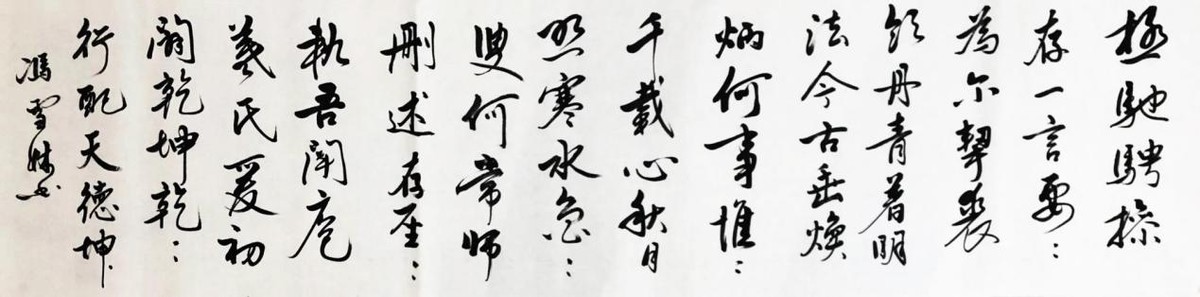 極馳騁操
存一言要
為尔挈裘
領丹青著明
法今古垂煥
炳何事惟
千載心秋月
照寒水魯
叟何常師
刪述存聖
軌吾聞庖
羲氏爰初
闢乾坤乾
行配天德坤
馮雪